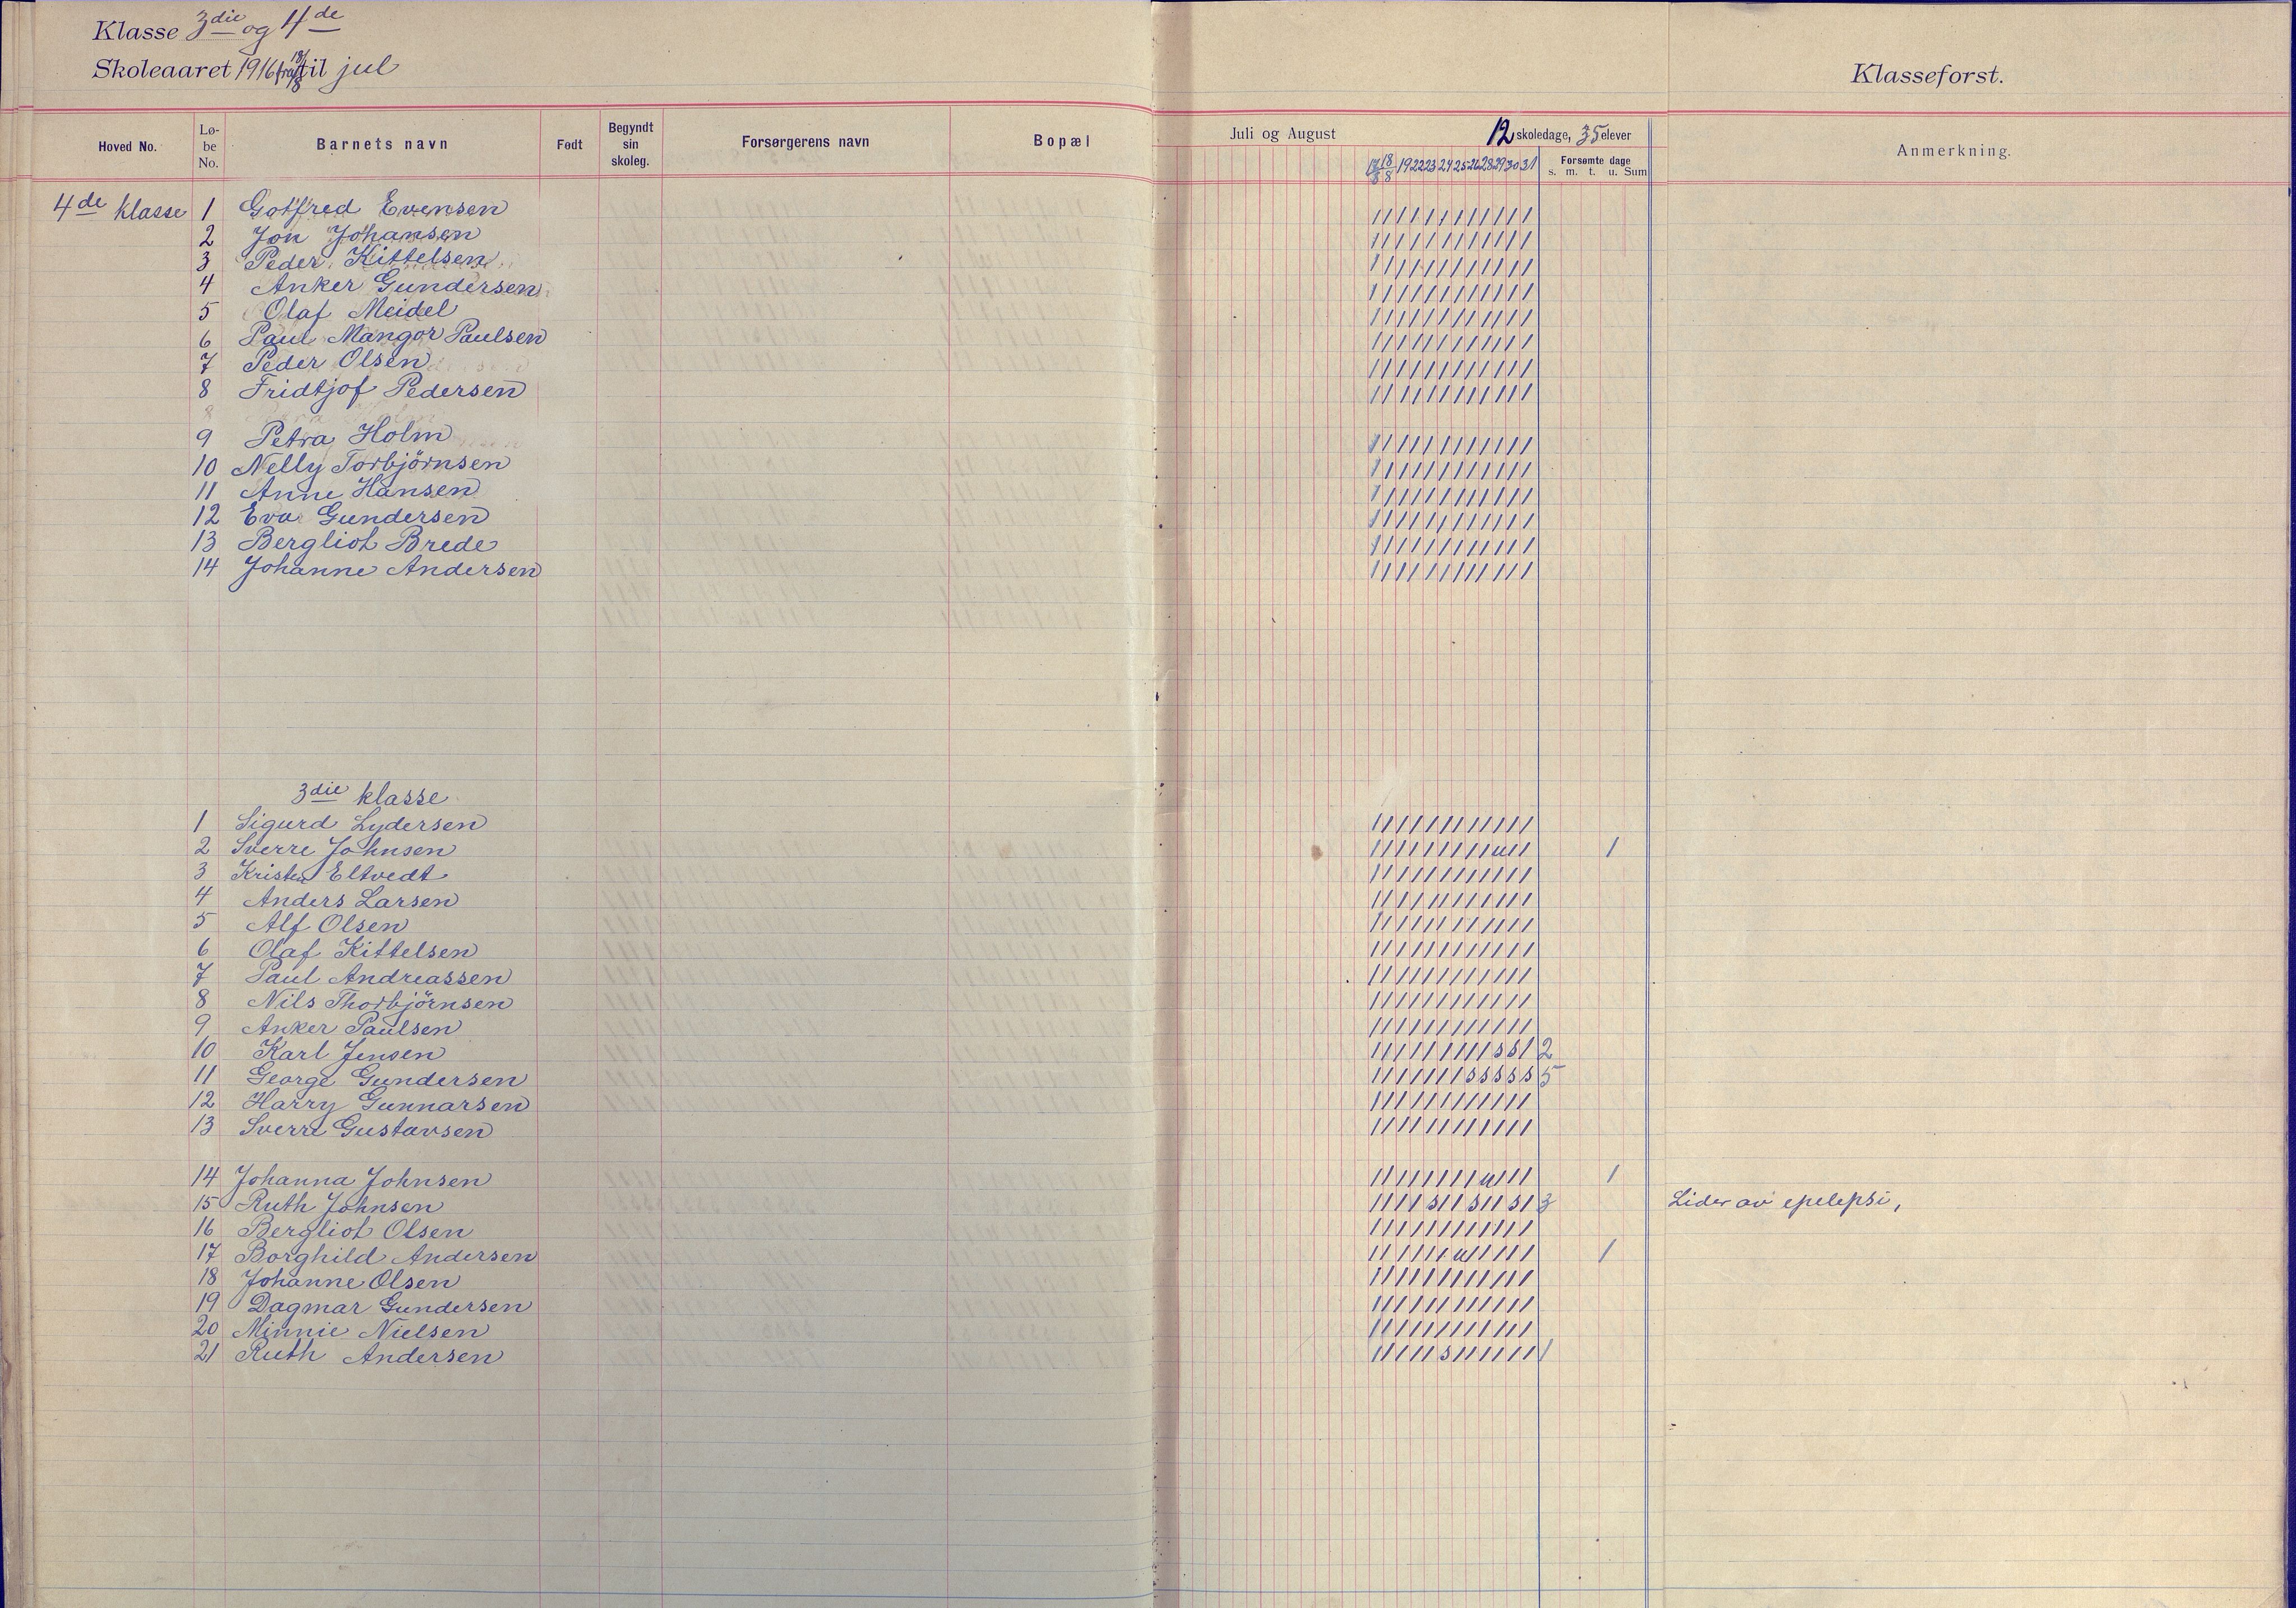 Klasse 3die og 4de
Skoleaaret 1916 fra 18/8 til jul
Klasseforst.
Hoved No.
Lø-
be
No.
Barnets navn
Født
Begyndt
sin
skoleg.
Forsørgerens navn
Bopæl
Juli og August
12 skoledage, 35 elever
Anmerkning.
17/8 18/8 19 22 23 24 25 26 28 29 30 31
Forsømte dage
s. m. t. u. Sum
4de klasse 1 Gotfred Evensen ////////////
2 Jon Johansen ////////////
3 Peder Kittelsen ////////////
4 Anker Gundersen ////////////
5 Olaf Meidel ////////////
6 Paul Mangor Paulsen ////////////
7 Peder Olsen ////////////
8 Fridtjof Pedersen ////////////
9 Petra Holm ////////////
10 Nelly Torbjörnsen ////////////
11 Anne Hansen ////////////
12 Eva Gundersen ////////////
13 Bergliot Brede ////////////
14 Johanne Andersen ////////////
3die klasse
1 Sigurd Lydersen ////////////
2 Sverre Johnsen /////////u// 1
3 Kristen Eltvedt ////////////
4 Anders Larsen ////////////
5 Alf Olsen ////////////
6 Olaf Kittelsen ////////////
7 Paul Andreassen ////////////
8 Nils Thorbjörnsen ////////////
9 Anker Paulsen ////////////
10 Karl Jensen /////////ss/ 2
11 George Gundersen ///////sssss 5
12 Harry Gunnarsen ////////////
13 Sverre Gustavsen ////////////
14 Johanna Johnsen ////////u/// 1
15 Ruth Johnsen ////s//s//s/ 3 Lider av epelepsi,
16 Bergliot Olsen ////////////
17 Borghild Andersen //////u///// 1
18 Johanne Olsen ////////////
19 Dagmar Gundersen ////////////
20 Minnie Nielsen ////////////
21 Ruth Andersen /////s////// 1